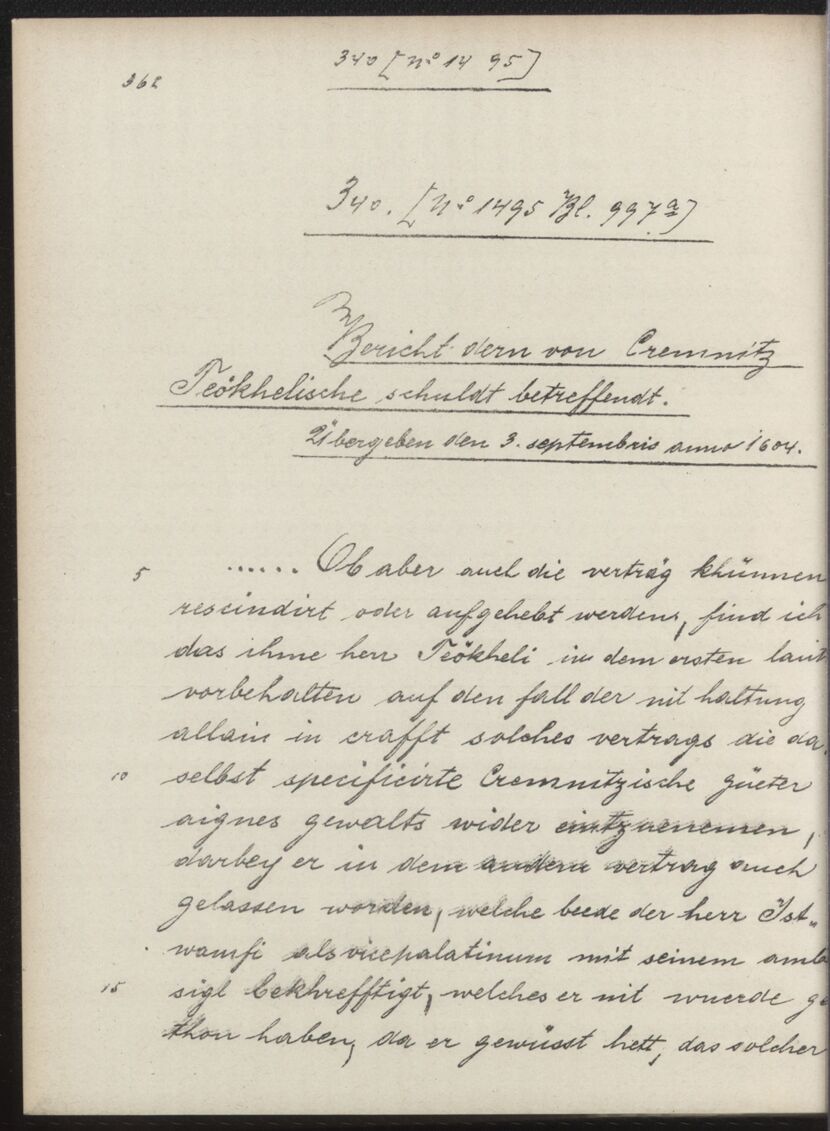 340 [No 14 95]
362
340. [No 1495 Bl. 997a]
Bericht dern von Cremnitz
Teökhelische schuldt betreffendt.
Übergeben den 3. septembris anno 1604.
5 ...... Ob aber auch die verträg khünnen
rescindirt oder aufgehebt werden, find ich
das ihme herr Teökheli in dem ersten laut
vorbehalten auf den fall der nit haltung
allain in crafft solches vertrags die da
10 selbst specificirte Cremnitzische güeter
aignes gewalts wider eintzuenemen,
darbey er in dem andern vertrag auch
gelassen worden, welche beede der herr Ist„
wamfi als vicepalatinum mit seinem amb
15 sigl bekhrefftigt, welches er nit wuerde ge
thon haben, da er gewüsst hett, das solcher